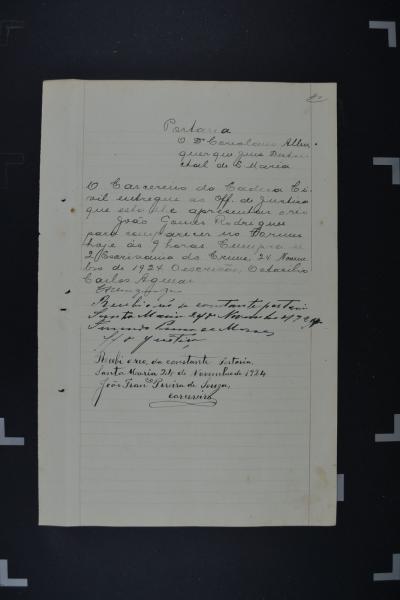 Portaria
O Dr Coriolano Albu-
querque Juiz Distri-
ctal de S. Maria
O Carcereiro da Cadeia Ci-
vil entregue ao Off. de Justiça
que esta lhe apresentar o réo
João Gomes Rodrigues
para comparecer no Forum
hoje ás 9 horas Cumpra-se
2 Escrivania do Crime, 24 Novem-
bro de 1924 O escrivão, Octacilio
Carlos Aguiar
Recebi o réo da constante portaria
Santa Maria 24 de Novembro 1924
de Moraes
of. justiça
Recebi o réo, da constante Portaria,
Santa Maria 24 de Novembro de 1924
João Franco Pereira de Souza,
carcereiro